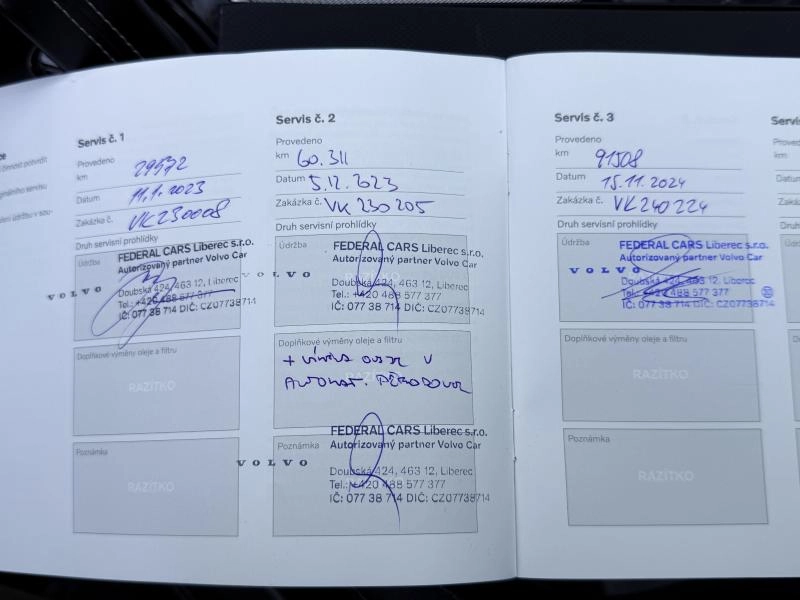 Servis č. 1
Provedeno
km 29572
Datum 11.1.2023
Zakázka č. VK230008
Druh servisní prohlídky
Údržba
FEDERAL CARS Liberec s.r.o.
Autorizovaný partner Volvo Car
VOLVO
Doubská 424, 463 12, Liberec
Tel.: +420 488 577 377
IČ: 077 38 714 DIČ: CZ07738714
Doplňkové výměny oleje a filtru
RAZÍTKO
Poznámka
RAZÍTKO
Servis č. 2
Provedeno
km 60.311
Datum 5.12.2023
Zakázka č. VK 230205
Druh servisní prohlídky
Údržba
FEDERAL CARS Liberec s.r.o.
Autorizovaný partner Volvo Car
RAZÍTKO
VOLVO
Doubská 424, 463 12, Liberec
Tel.: +420 488 577 377
IČ: 077 38 714 DIČ: CZ07738714
Doplňkové výměny oleje a filtru
+ V
AUTOMAT.
RAZÍTKO
Poznámka
FEDERAL CARS Liberec s.r.o.
Autorizovaný partner Volvo Car
VOLVO
Doubská 424, 463 12, Liberec
Tel.: +420 488 577 377
IČ: 077 38 714 DIČ: CZ07738714
Servis č. 3
Provedeno
km 91508
Datum 15.11.2024
Zakázka č. VK240224
Druh servisní prohlídky
Údržba
FEDERAL CARS Liberec s.r.o.
Autorizovaný partner Volvo Car
VOLVO
Doubská 424, 463 12, Liberec
Tel.: +420 488 577 377
IČ: 077 38 714 DIČ: CZ07738714
Doplňkové výměny oleje a filtru
RAZÍTKO
Poznámka
RAZÍTKO